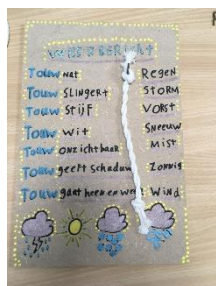 WEERBERICHT
Touw nat Regen
Touw slingert STORM
Touw Stijf VORST
Touw wit Sneeuw
Touw onzichtbaar Mist
Touw geeft schaduw Zonnig
Touw gaat heen en weer Wind